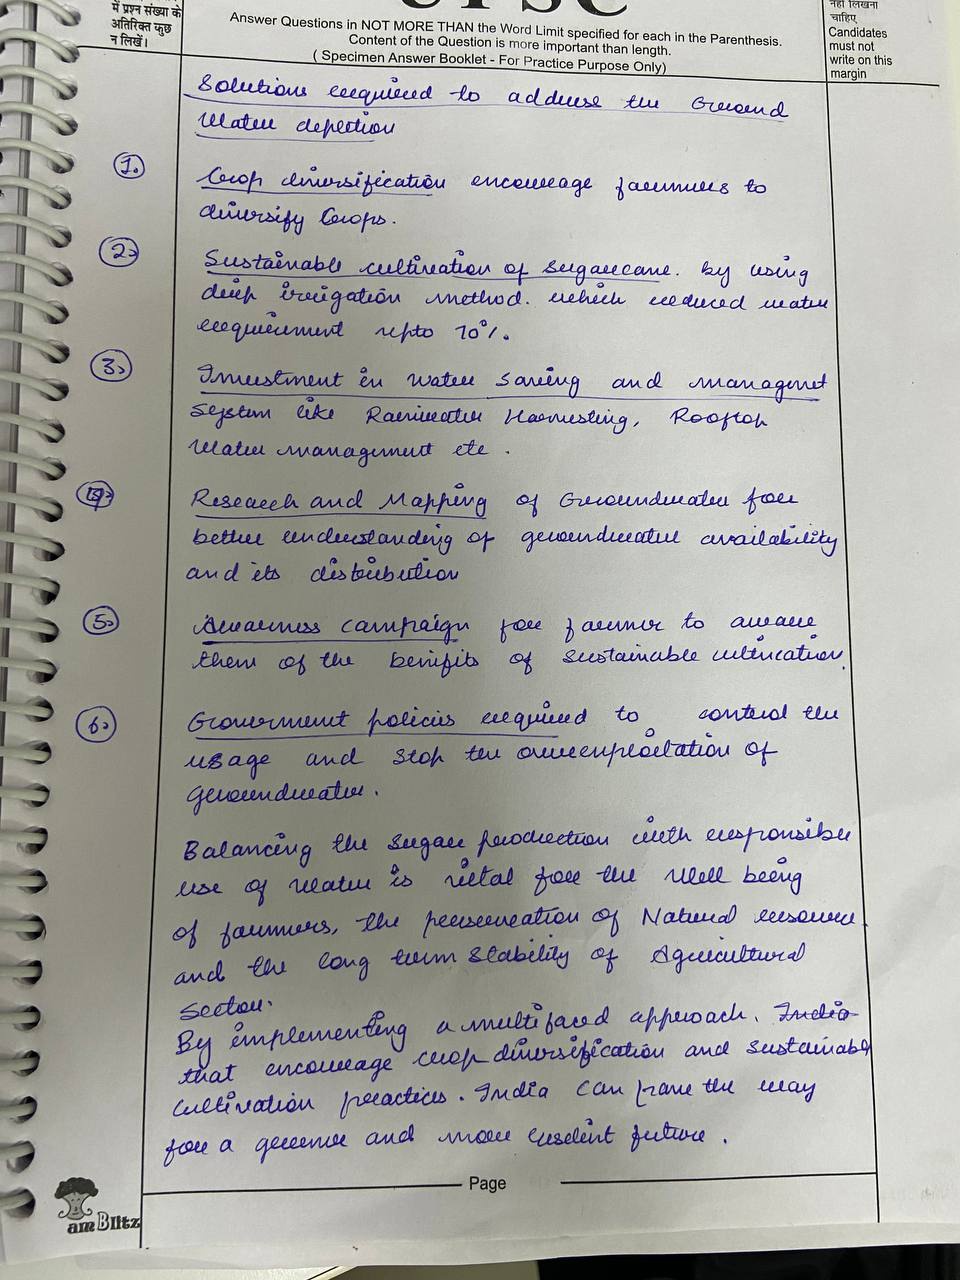 में प्रश्न संख्या के
अतिरिक्त कुछ
न लिखें।
UPSC
Answer Questions in NOT MORE THAN the Word Limit specified for each in the Parenthesis.
Content of the Question is more important than length.
( Specimen Answer Booklet - For Practice Purpose Only)
नहीं लिखना
चाहिए
Candidates
must not
write on this
margin
Solutions required to address the Ground
Water depletion
1. Crop diversification encourage farmers to
diversify Crops.
2. Sustainable cultivation of sugarcane. by using
drip irrigation method. which reduced water
requirement upto 70%.
3. Investment in water saving and managment
system like Rainwater Harvesting, Rooftop
Water management etc.
4. Research and Mapping of Groundwater for
better understanding of groundwater availability
and its distribution
5. Awarness campaign for farmer to aware
them of the benifits of sustainable cultivation.
6. Government policies required to control the
usage and stop the overexploitation of
groundwater.
Balancing the sugar production with responsible
use of water is vital for the well being
of farmers, the preservation of Natural resource
and the long term stability of Agricultural
Sector.
By implementing a multifaced approach. India
that encourage crop diversification and sustainable
cultivation practices. India can pave the way
for a greener and more resilient future.
Page
am Blitz